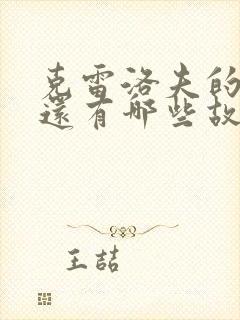 克雷洛夫的
還有哪些故
王喆